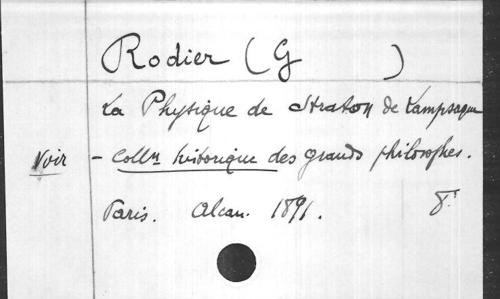 Rodier (G )
La Physique de Straton de Lampsaque
Voir - Colln historique des grands philosophes.
Paris. Alcan. 1891. 8°